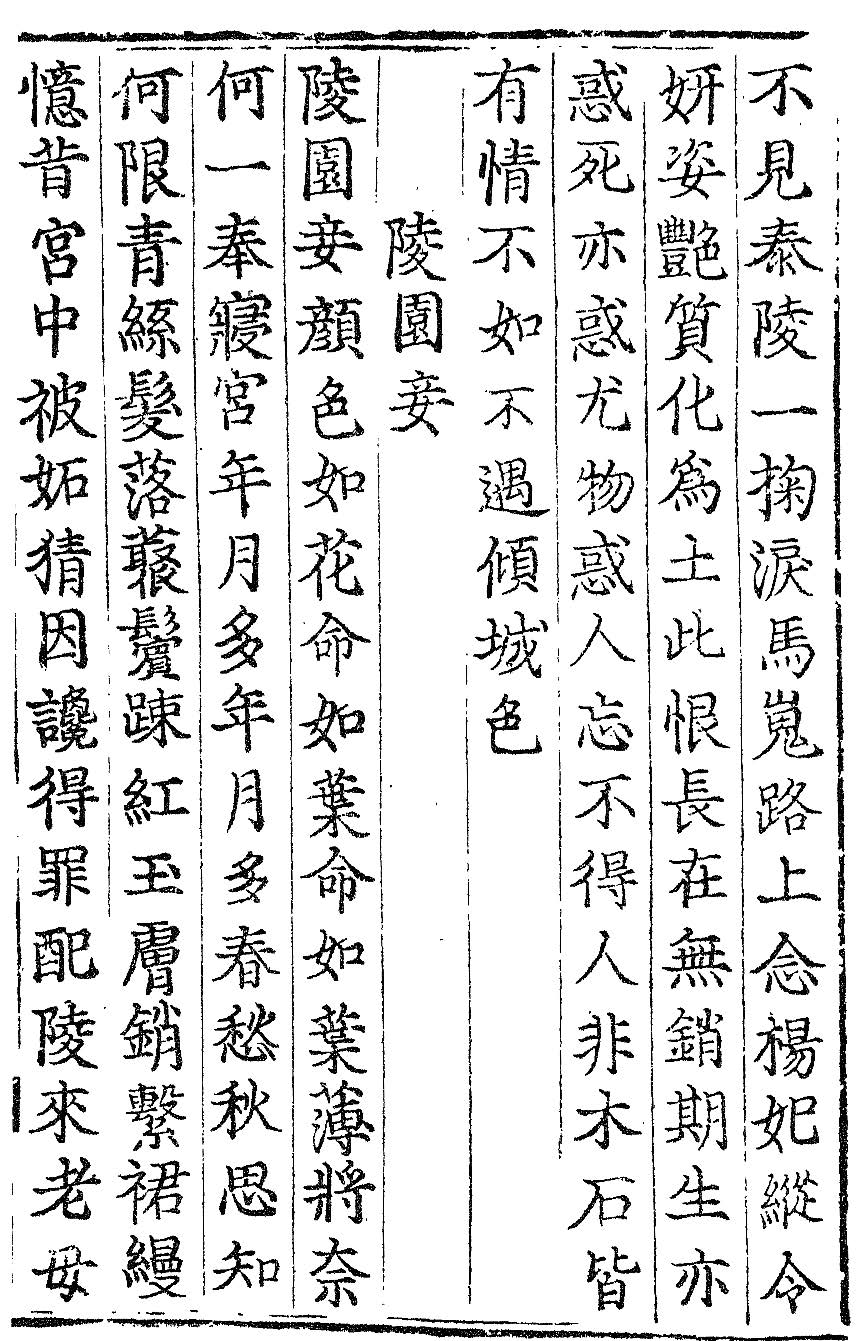 不見泰陵一掬淚馬嵬路上念楊妃縱令
妍姿艷質化爲土此恨長在無銷期生亦
惑死亦惑尤物惑人忘不得人非木石皆
有情不如不遇傾城色
陵園妾
陵園妾顔色如花命如葉命如葉薄將奈
何一奉寢宮年月多年月多春愁秋思知
何限青絲髮落藂鬢踈紅玉膚銷繫裙縵
憶昔宮中被妬猜因讒得罪配陵來老母